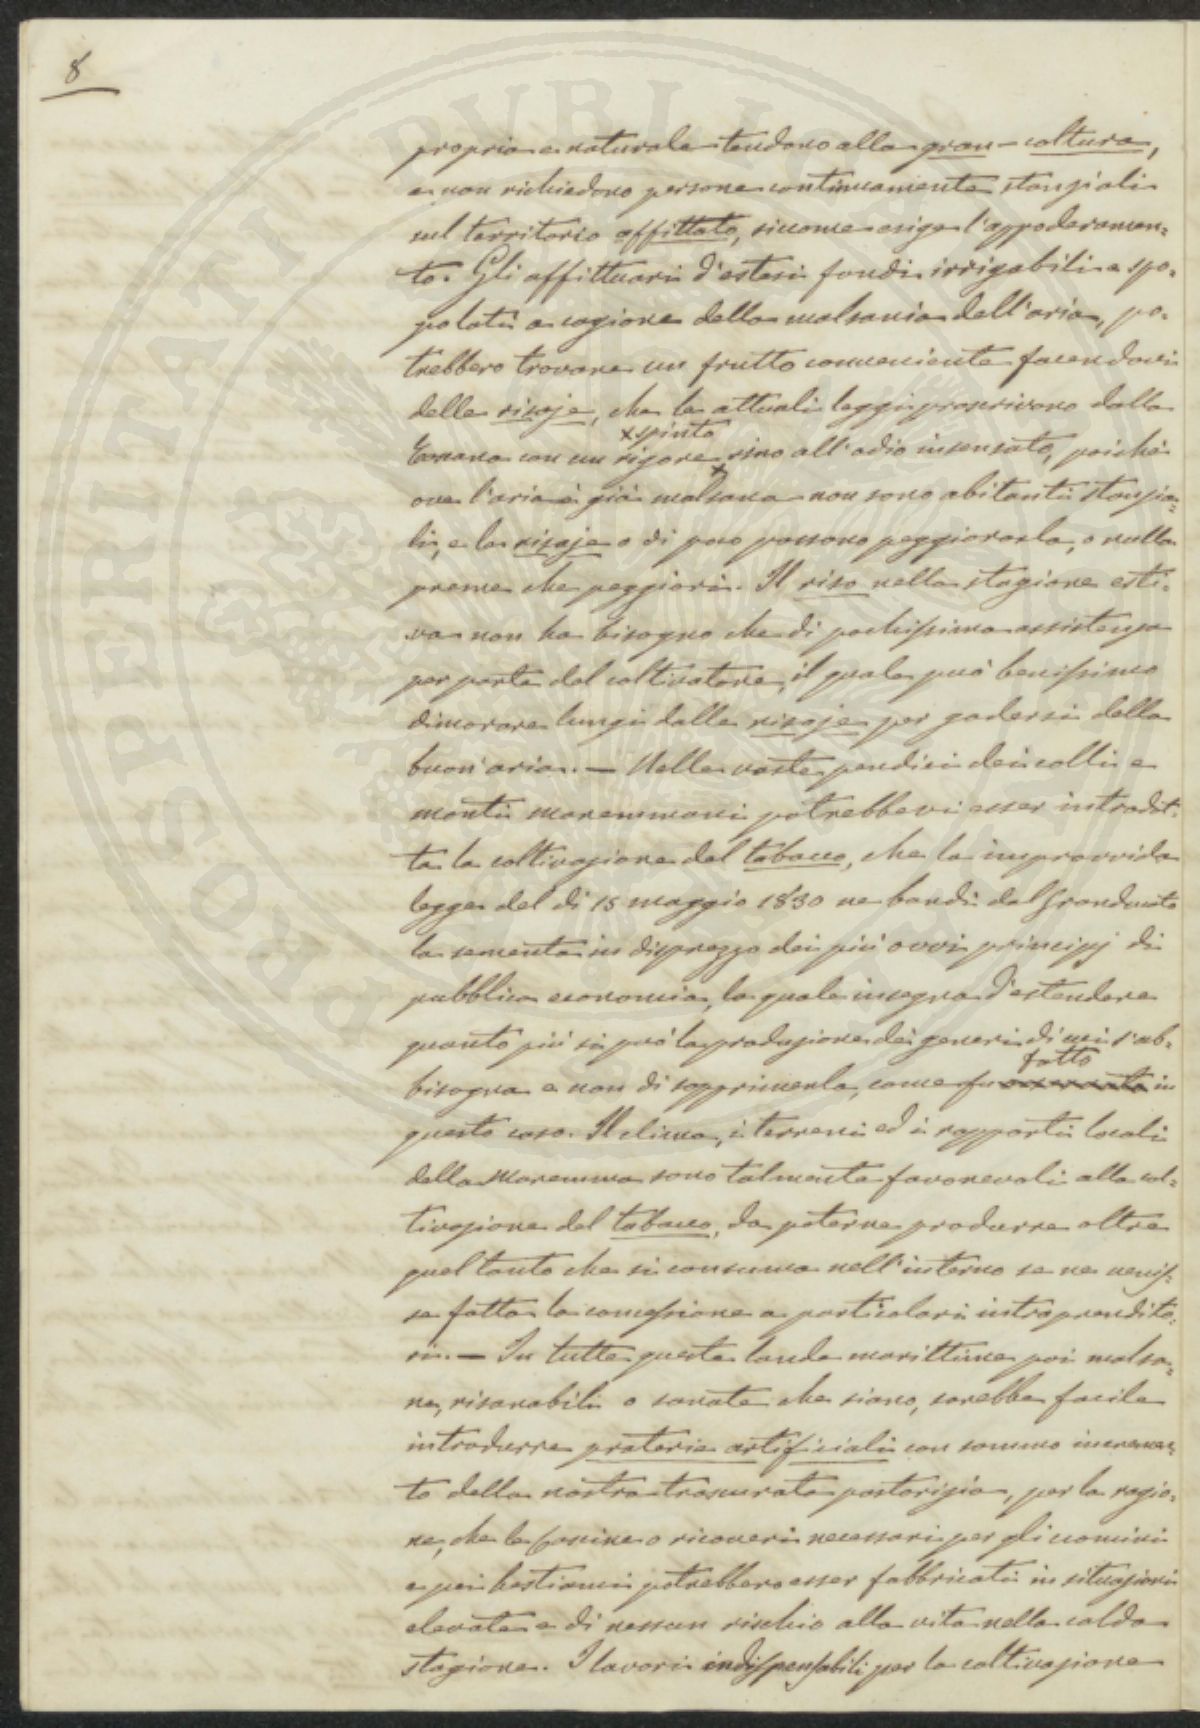 8
propria e naturale tendono alla gran-coltura,
e non richiedono persone continuamente stanziali
sul territorio affittato, siccome esige l'appoderamen=
to. Gli affittuarii d'estesi fondi irrigabili e spo=
polati a cagione della malsania dell'aria, po=
trebbero trovare un frutto conveniente facendovi
delle risaje, che le attuali leggi proscrivono dalla
x spinto
Toscana con un rigore x sino all'odio insensato, poichè
ove l'aria è già malsana non sono abitanti stanzia=
li, e le risaje o di poco possono peggiorarla, o nulla
preme che peggiori. Il riso nella stagione esti=
va non ha bisogno che di pochissima assistenza
per parte del coltivatore, il quale può benissimo
dimorare lungi dalle risaje per godersi della
buon'aria. — Nelle vaste pendici dei colli e
monti maremmani potrebbevi esser introdot=
ta la coltivazione del tabacco, che la improvvida
legge del dì 15 maggio 1830 ne bandì dal Granducato
la sementa in disprezzo dei più ovvi principj di
pubblica economia, la quale insegna d'estendere
quanto più si può la produzione dei generi di cui s'ab=
fatto
bisogna e non di sopprimerla, come fu in
questo caso. Il clima, i terreni ed i rapporti locali
della Maremma sono talmente favorevoli alla col=
tivazione del tabacco, da poterne produrre oltre
quel tanto che si consuma nell'interno se ne venis=
se fatta la concessione a particolari intraprendito=
ri. — In tutte queste lande marittime poi malsa=
ne, risanabili o sanate che siano, sarebbe facile
introdurre praterie artificiali con sommo incremen=
to della nostra trascurata pastorizia, per la ragio=
ne, che le cascine o ricoveri necessari per gli uomini
e pei bestiami potrebbero esser fabbricati in situazioni
elevate e di nessun rischio alla vita nella calda
stagione. I lavori indispensabili per la coltivazione
PROSPERITATI PUBLICAE